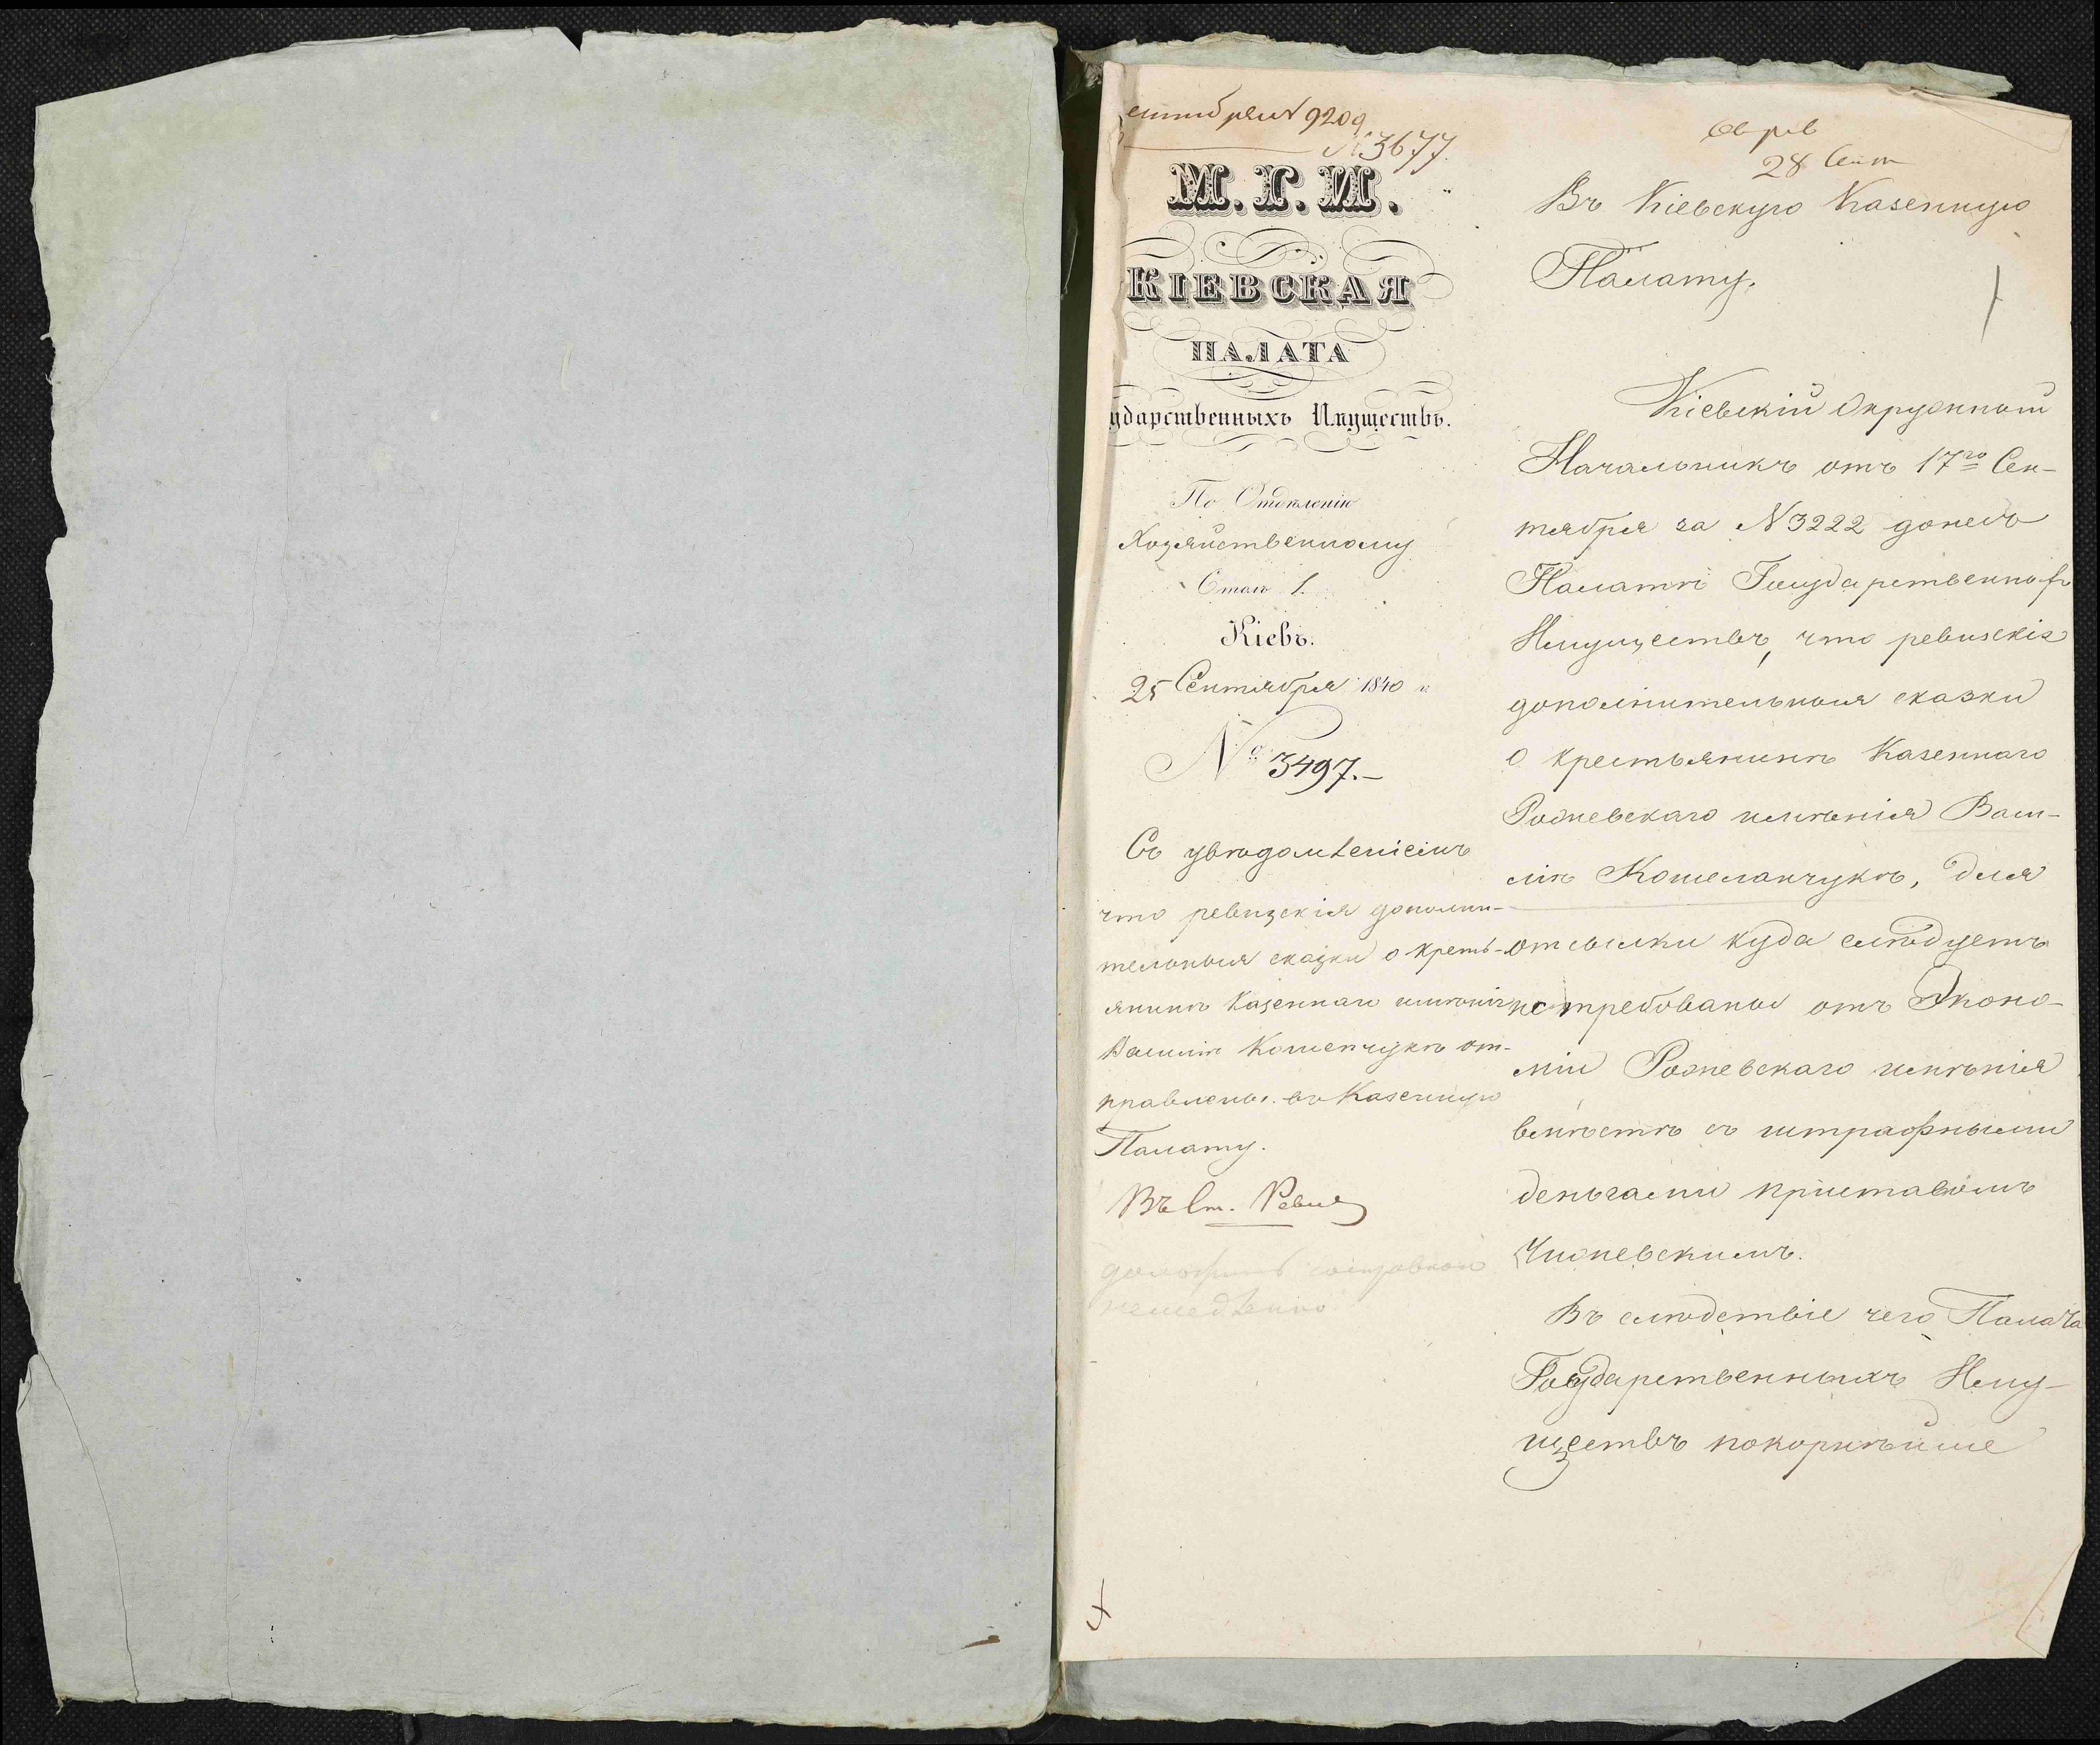 ентября № 9209
№ 3677.
М. Г. И.
КІЕВСКАЯ
ПАЛАТА
ударственныхъ Имуществъ.
По Отдѣленію
Хозяйственному
Столъ 1.
Кіевъ.
25 Сентября 1840 г.
№ 3497.—
Съ увѣдомленіемъ
что ревизскія дополни-
тельныя сказки о кресть-
янинѣ Казеннаго имѣнія
Василіѣ Кошенчукѣ от-
правлены въ Казенную
Палату.
Въ Ст. Ревиз
доложить
немедленно
28 Сент
Въ Кіевскую Казенную
Палату.
Кіевскій Окружной
Начальникъ отъ 17го Сен-
тября за № 3222 донесъ
Палатѣ Государственныхъ
Имуществъ, что ревизскія
дополнительныя сказки
о крестьянинѣ Казеннаго
Рожевскаго имѣнія Васи-
ліѣ Кошеланчукѣ, для
отсылки куда слѣдуетъ
истребованы отъ Эконо-
міи Рожевскаго имѣнія
вмѣстѣ съ штрафными
деньгами приставомъ
Чижевскимъ.
Въ слѣдствіе чего Палата
Государственныхъ Иму-
ществъ покорнѣйше